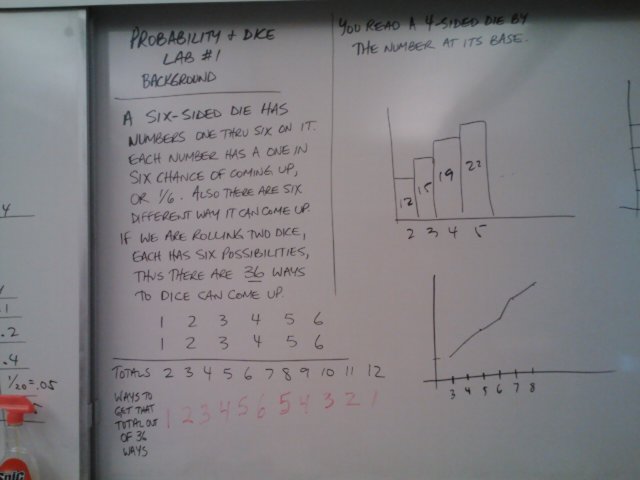 PROBABILITY + DICE
LAB #1
BACKGROUND
A SIX-SIDED DIE HAS
NUMBERS ONE THRU SIX ON IT.
EACH NUMBER HAS A ONE IN
SIX CHANCE OF COMING UP,
OR 1/6. ALSO THERE ARE SIX
DIFFERENT WAY IT CAN COME UP.
IF WE ARE ROLLING TWO DICE,
EACH HAS SIX POSSIBILITIES,
THUS THERE ARE 36 WAYS
TO DICE CAN COME UP.
1 2 3 4 5 6
1 2 3 4 5 6
TOTALS 2 3 4 5 6 7 8 9 10 11 12
WAYS TO
GET THAT
TOTAL OUT
OF 36
WAYS
1 2 3 4 5 6 5 4 3 2 1
YOU READ A 4-SIDED DIE BY
THE NUMBER AT ITS BASE.
12 15 19 22
2 3 4 5
3 4 5 6 7 8
4
.1
.2
.4
1/20=.05